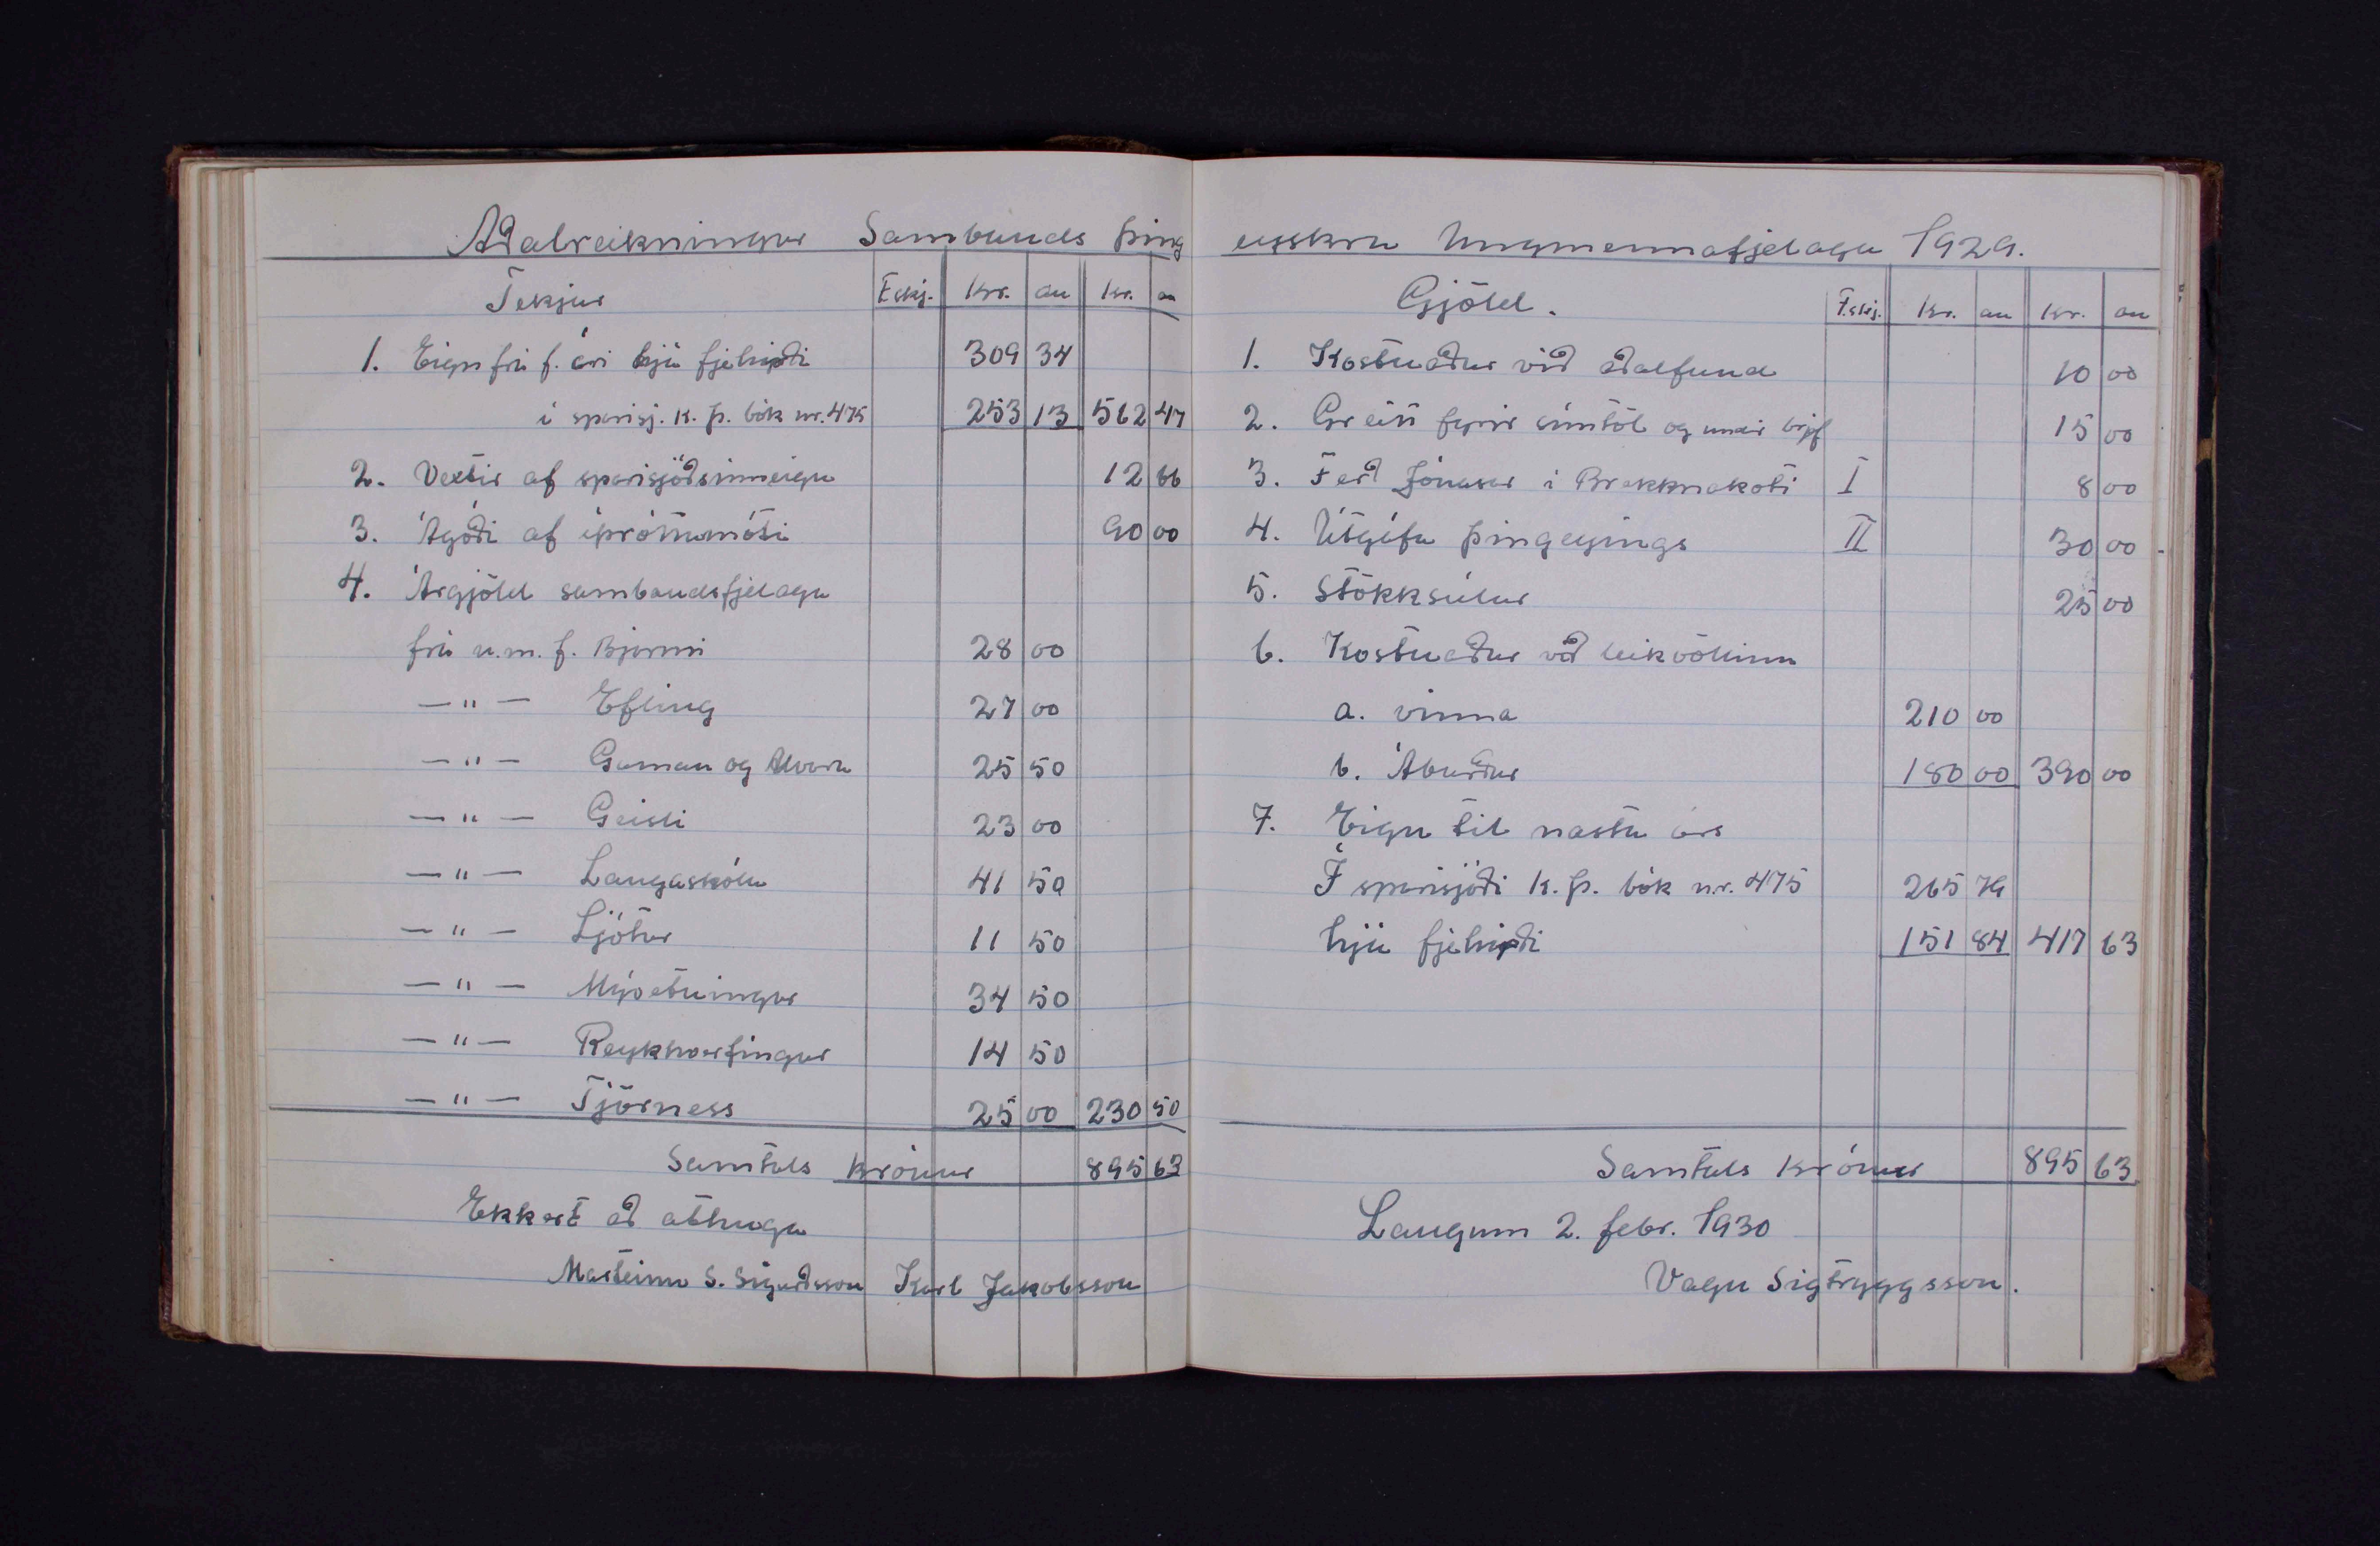 Aðalreikningur Sambands þing
Tekjur Fskj. Kr. au Kr. au
1. Eign frá f. ári hjá fjehirði 309 34
í sparisj. K. Þ. bók nr. 475 253 13 562 47
2. Vextir af sparisjóðsinneign 12 66
3. Ágóði af íþróttamóti 90 00
4. Árgjöld sambandsfjelaga
frá u.m.f. Bjarmi 28 00
— " — Efling 27 00
— " — Gaman og Alvara 25 50
— " — Geisli 23 00
— " — Laugaskóla 41 50
— " — Ljótur 11 50
— " — Mývetningur 34 50
— " — Reykhverfingur 14 50
— " — Tjörness 25 00 230 50
Samtals krónur 895 63
Ekkert að athuga
Marteinn S. Sigurðsson Karl Jakobsson
eyskra Ungmennafjelaga 1929.
Gjöld. F.skj. Kr. au Kr. au
1. Kostnaður við aðalfund 10 00
2. Greitt fyrir símtöl og undir brjef 15 00
3. Ferð Jónasar í Brekknakoti I 8 00
4. Útgáfa Þingeyings II 30 00
5. Stökksúlur 25 00
6. Kostnaður við leikvöllinn
a. vinna 210 00
b. Áburður 180 00 390 00
7. Eign til næsta árs
Í sparisjóði K. Þ. bók n.r. 475 265 79
hjá fjehirði 151 84 417 63
Samtals krónur 895 63
Laugum 2. febr. 1930
Vagn Sigtryggsson.